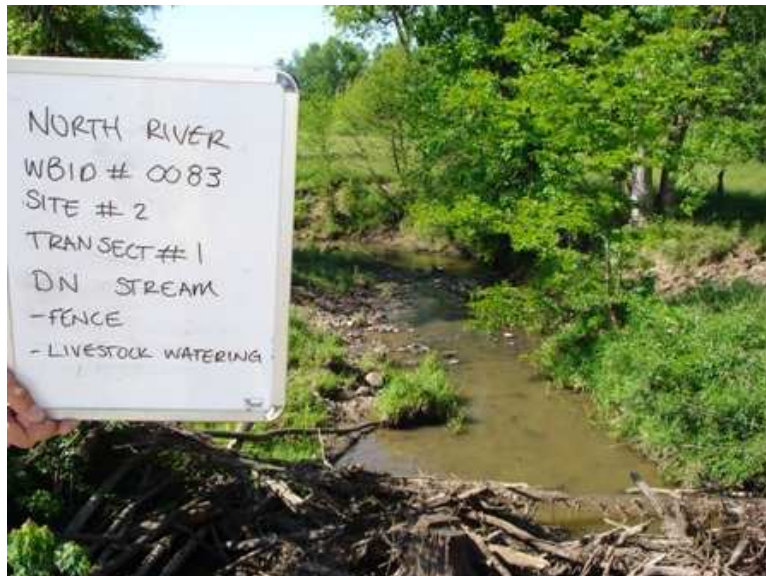 NORTH RIVER
WBID # 0083
SITE # 2
TRANSECT # 1
DN STREAM
-FENCE
- LIVESTOCK WATERING